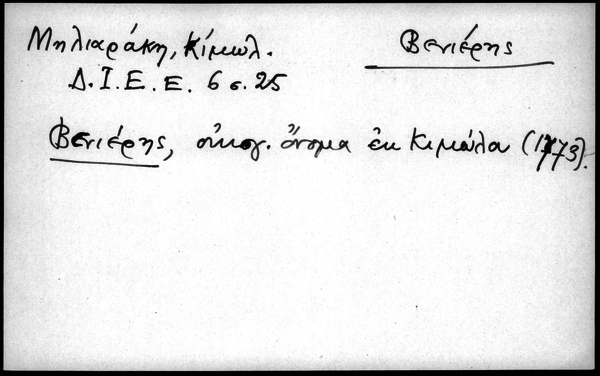 Μηλιαράκη, Κίμωλ.
Βενιέρης
Δ.Ι.Ε.Ε. 6 σ. 25
Βενιέρης, οἰκογ. ὄνομα ἐκ Κιμώλου (1773).